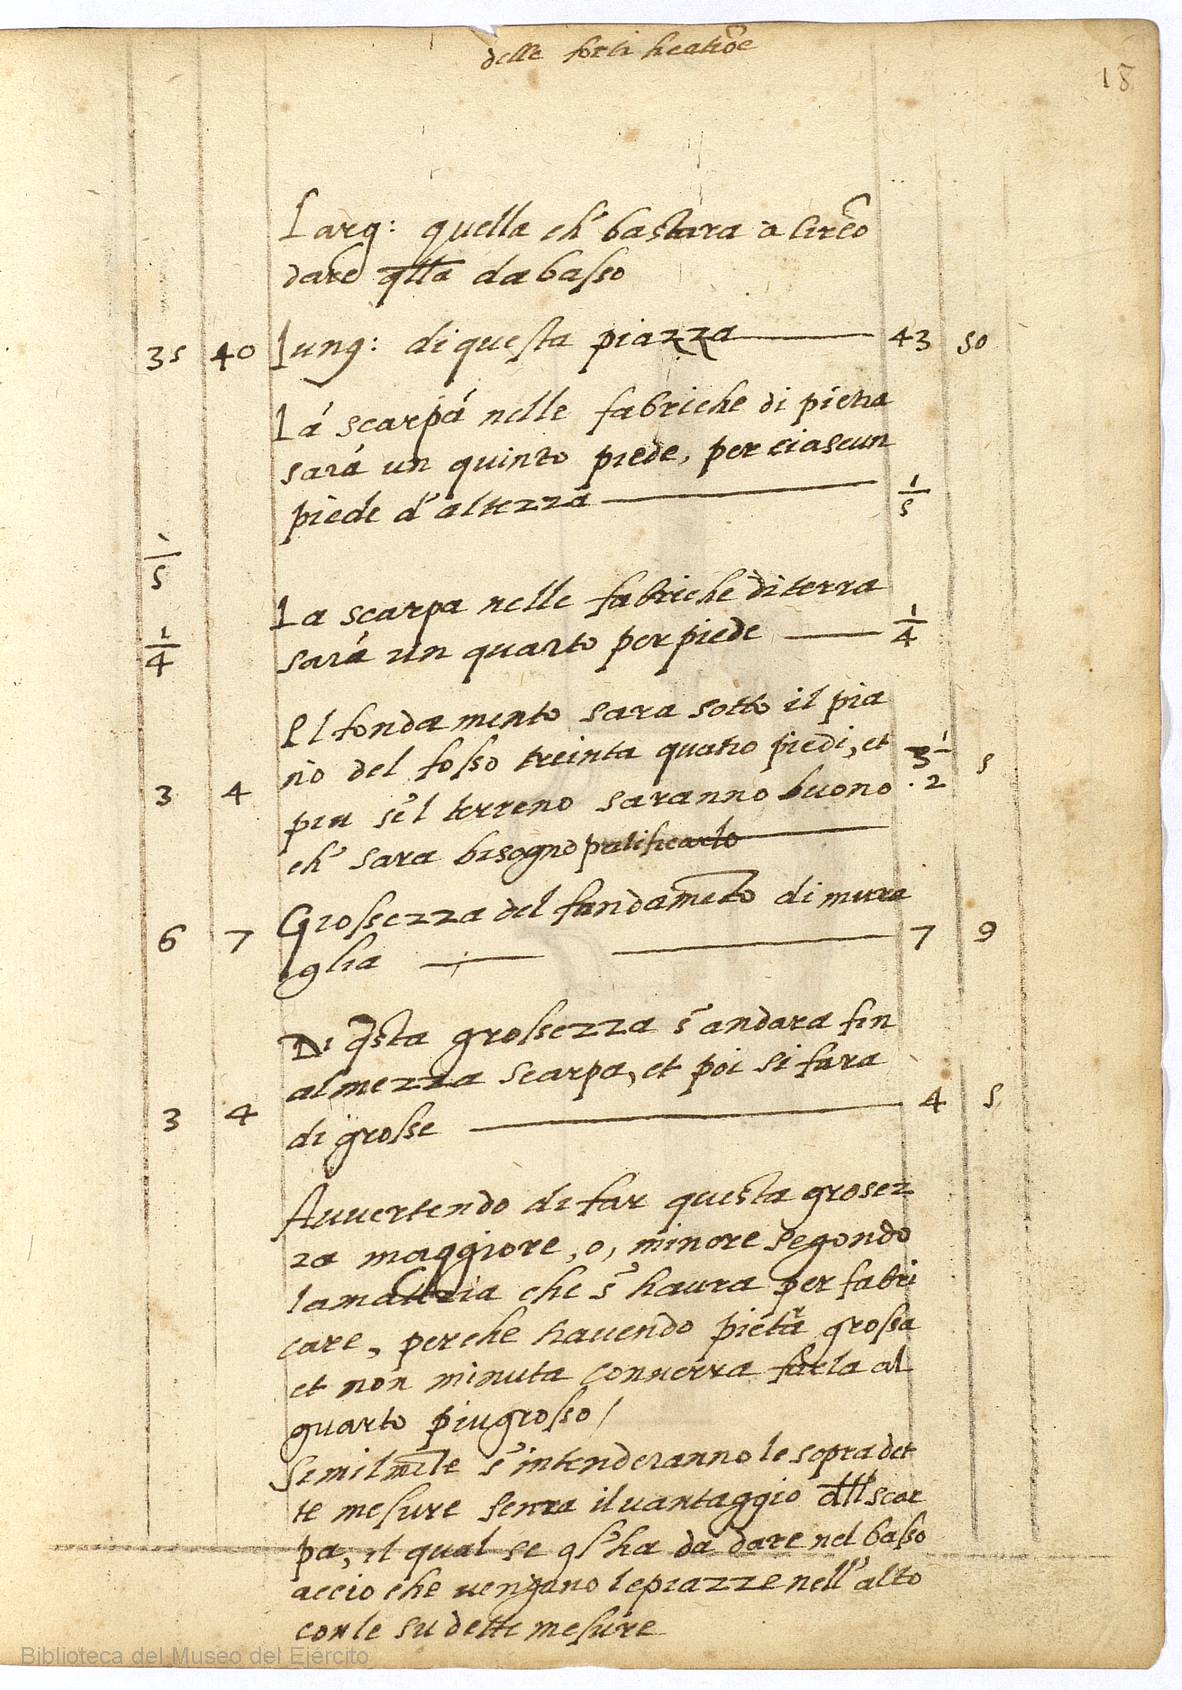 delle fortificatiōe
18
Larg: quella ch' bastara a circō
dare qlla da basso
35 40 Lung: di questa piazza 43 50
La scarpa nelle fabriche di pietra
sará un quinto piede, per ciascun
piede d'altezza 1/5
1/5
La scarpa nelle fabriche di terra
1/4 sará un quarto per piede 1/4
El fondamento sara sotto il pia
no del fosso treinta quatro piedi, et 3 1/2 5
3 4 piu se'l terreno saranno buono
ch' sara bisogno palificarlo
Grossezza del fundamēto di mura
6 7 glia 7 9
Di qsta grossezza s' andara fin
al mezza scarpa, et poi si fara
3 4 di grosse 4 5
Auvertendo di far questa grosez
za maggiore, o, minore segondo
la materia che s' haura per fabri
care, perche havendo pietra grossa
et non minuta converra farla al
quarto piu grosso /
Semilmēte s' intenderanno le sopra det
te mesure senza il vantaggio dlla scar
pa, il qual se gl' ha da dare nel basso
accio che vengano le piazze nell' alto
con le su dette mesure
Biblioteca del Museo del Ejército